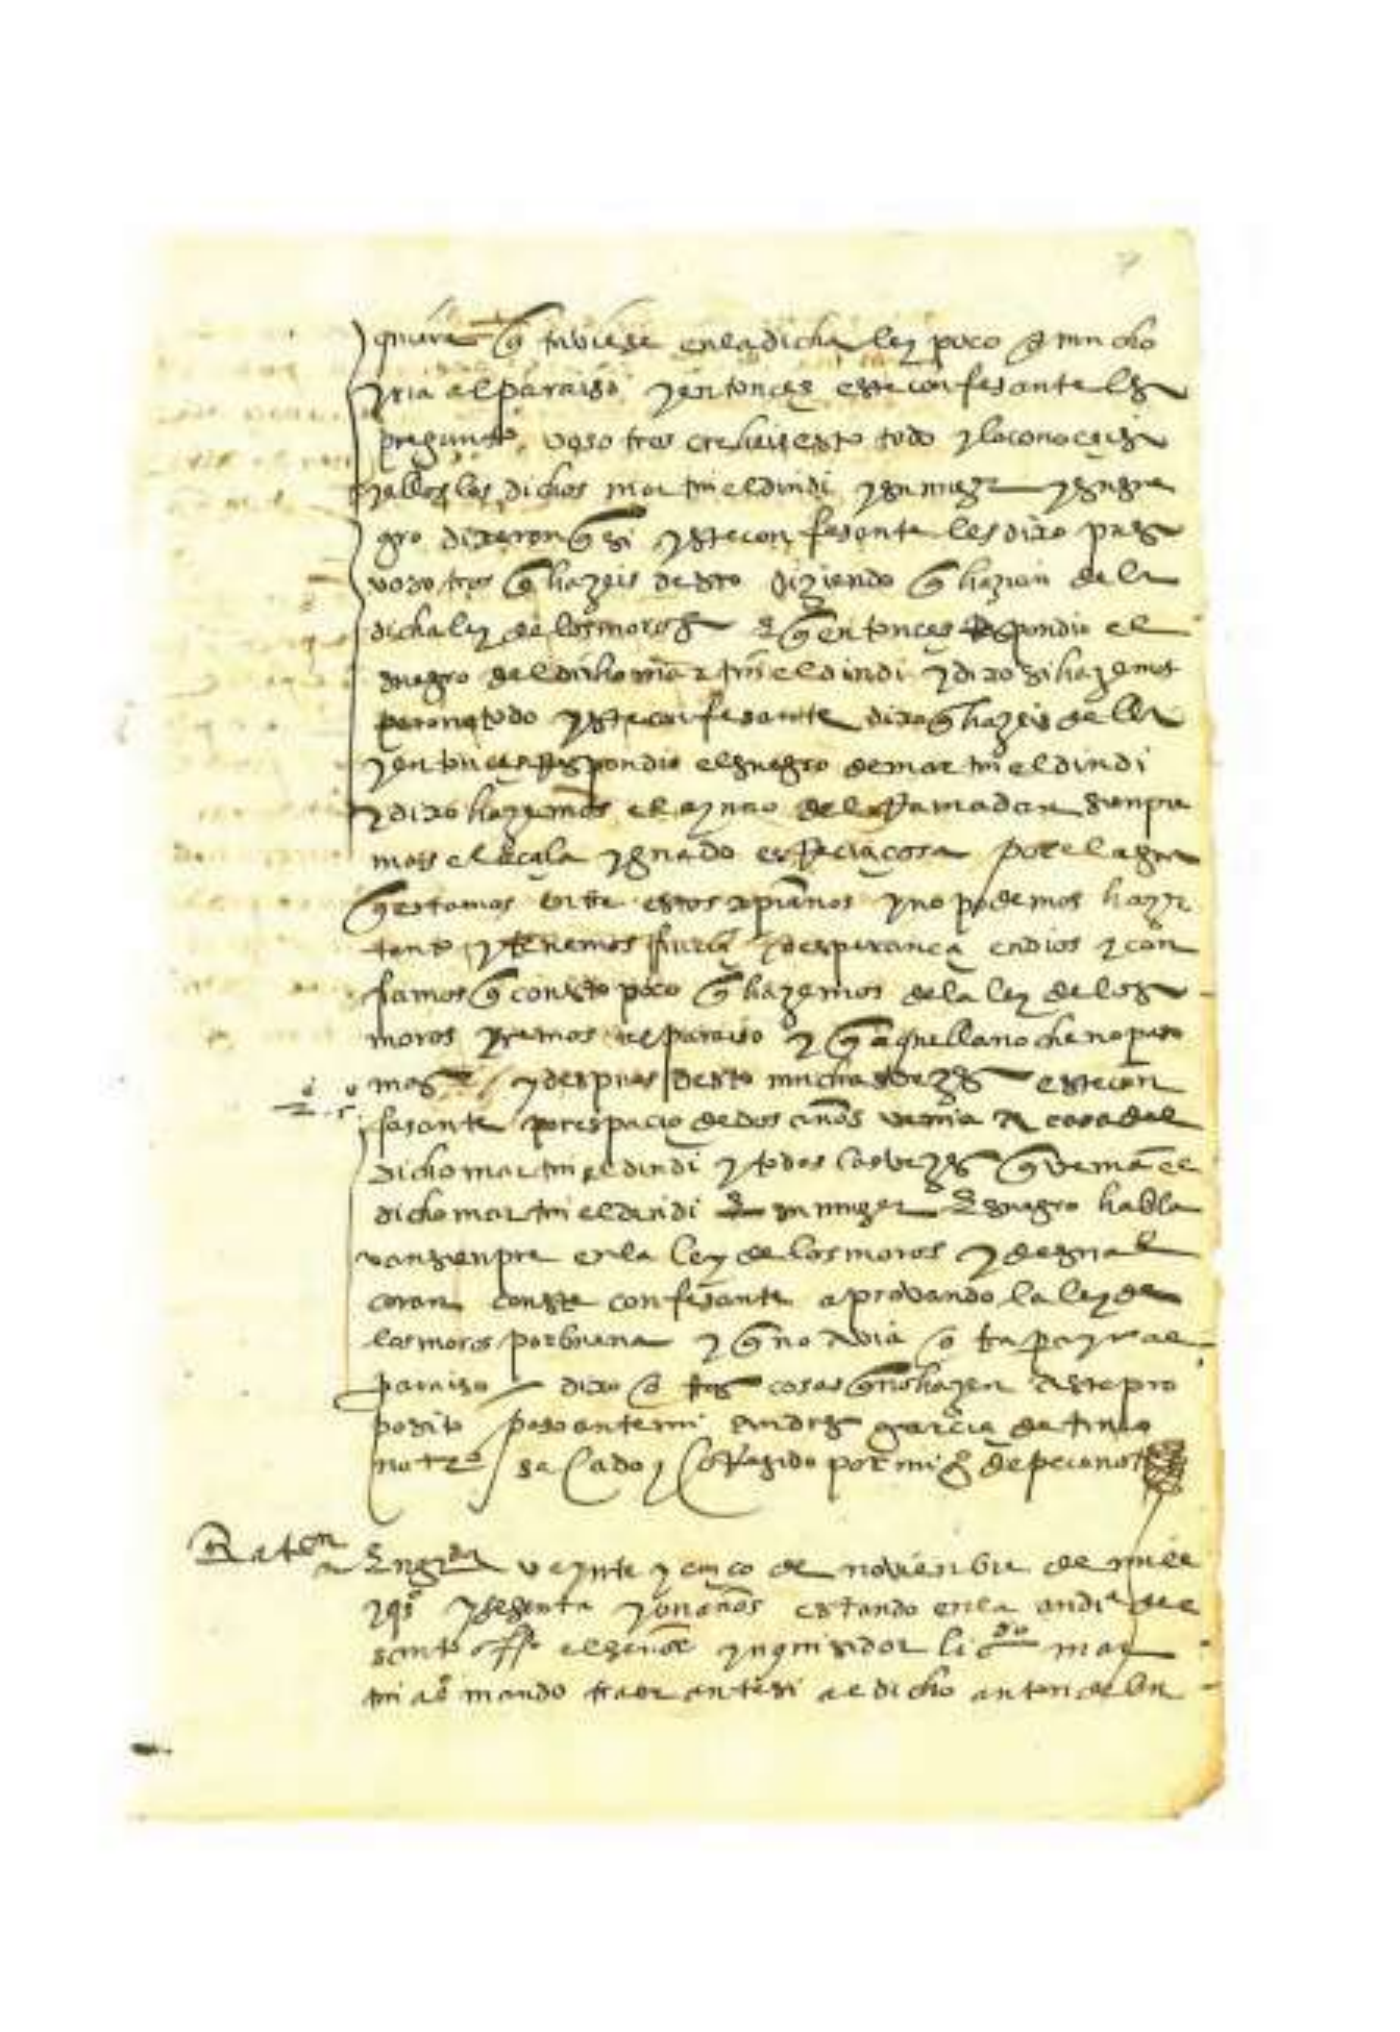 quiera q tubiese en la dicha ley poco o mucho
yria al parayso y entonçes este confesante les
pregunto vosotros creheis esto todo y lo conoçeis
y ellos los dichos martin el dindi y su muger y su sue
gro dixeron q si y este confesante les dixo pues
vosotros q hazeis desto diziendo q hazian de la
dicha ley de los moros e q entonçes Respondio el
suegro del dicho martin el dindi y dixo si hazemos
pero no todo y este confesante dixo q hazeis della
y entonçes Respondio el suegro de martin el dindi
y dixo hazemos el ayuno del Ramadan sienpre
mas el açala y guado es Reçia cosa por el agua
q estamos entre estos xpianos y no podemos hazer
tanto y tenemos y esperança en dios y con
fiamos q con esto poco q hazemos de la ley de los
moros yremos al parayso y q aquella noche no paso
mas y despues desto muchas vezes este con
fesante por espaçio de dos años venia a casa del
dicho martin el dindi y todas las vezes q venia el
dicho martin el dindi e su muger e suegro habla
van sienpre en la ley de los moros y de su al
coran con este confesante aprovando la ley de
los moros por buena y q no avia otra pa yr al
parayso dixo otras cosas q no hazen a este pro
posito paso ante mi andres garçia de tineo
not.º sacado y corregido por mi
Raton
En gr.da veynte y çinco de novienbre de mill
y qs y sesenta y un años estando en la audi.ª del
santo off.º el señor ynquisidor liçdo mar
tin aº mando traer ante si al dicho anton de